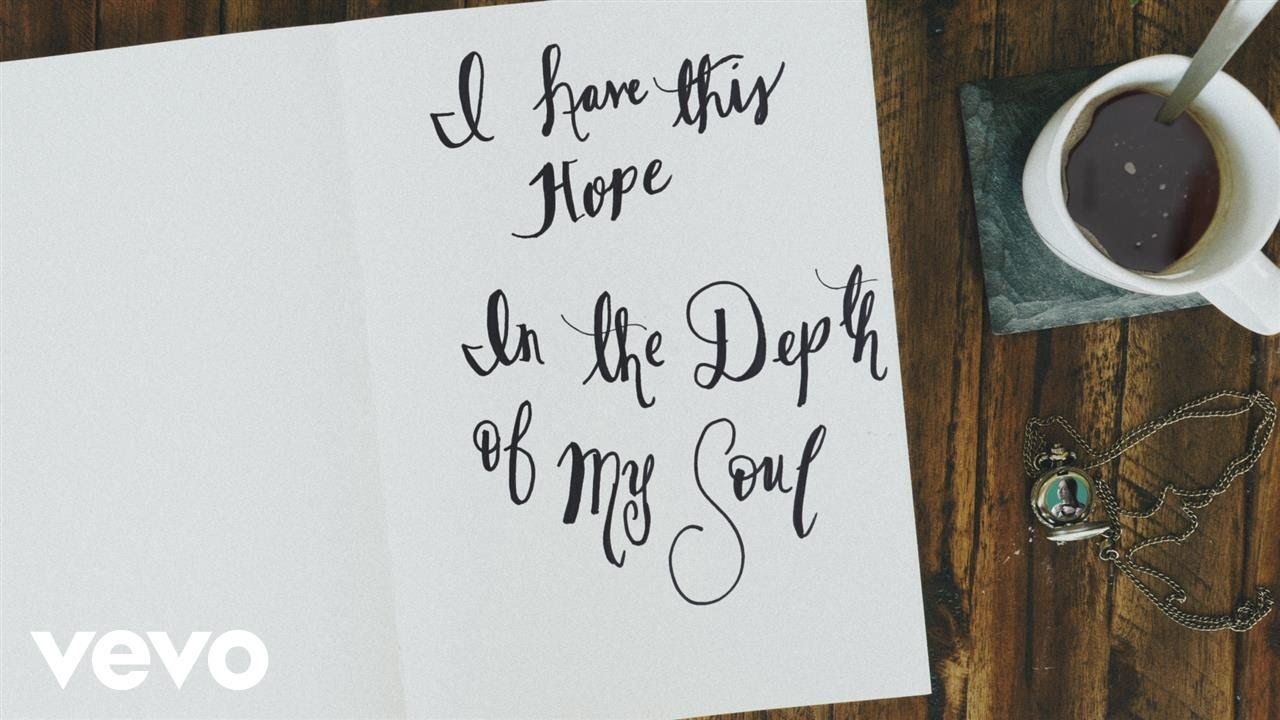 I have this
Hope
In the Depth
of My Soul
vevo